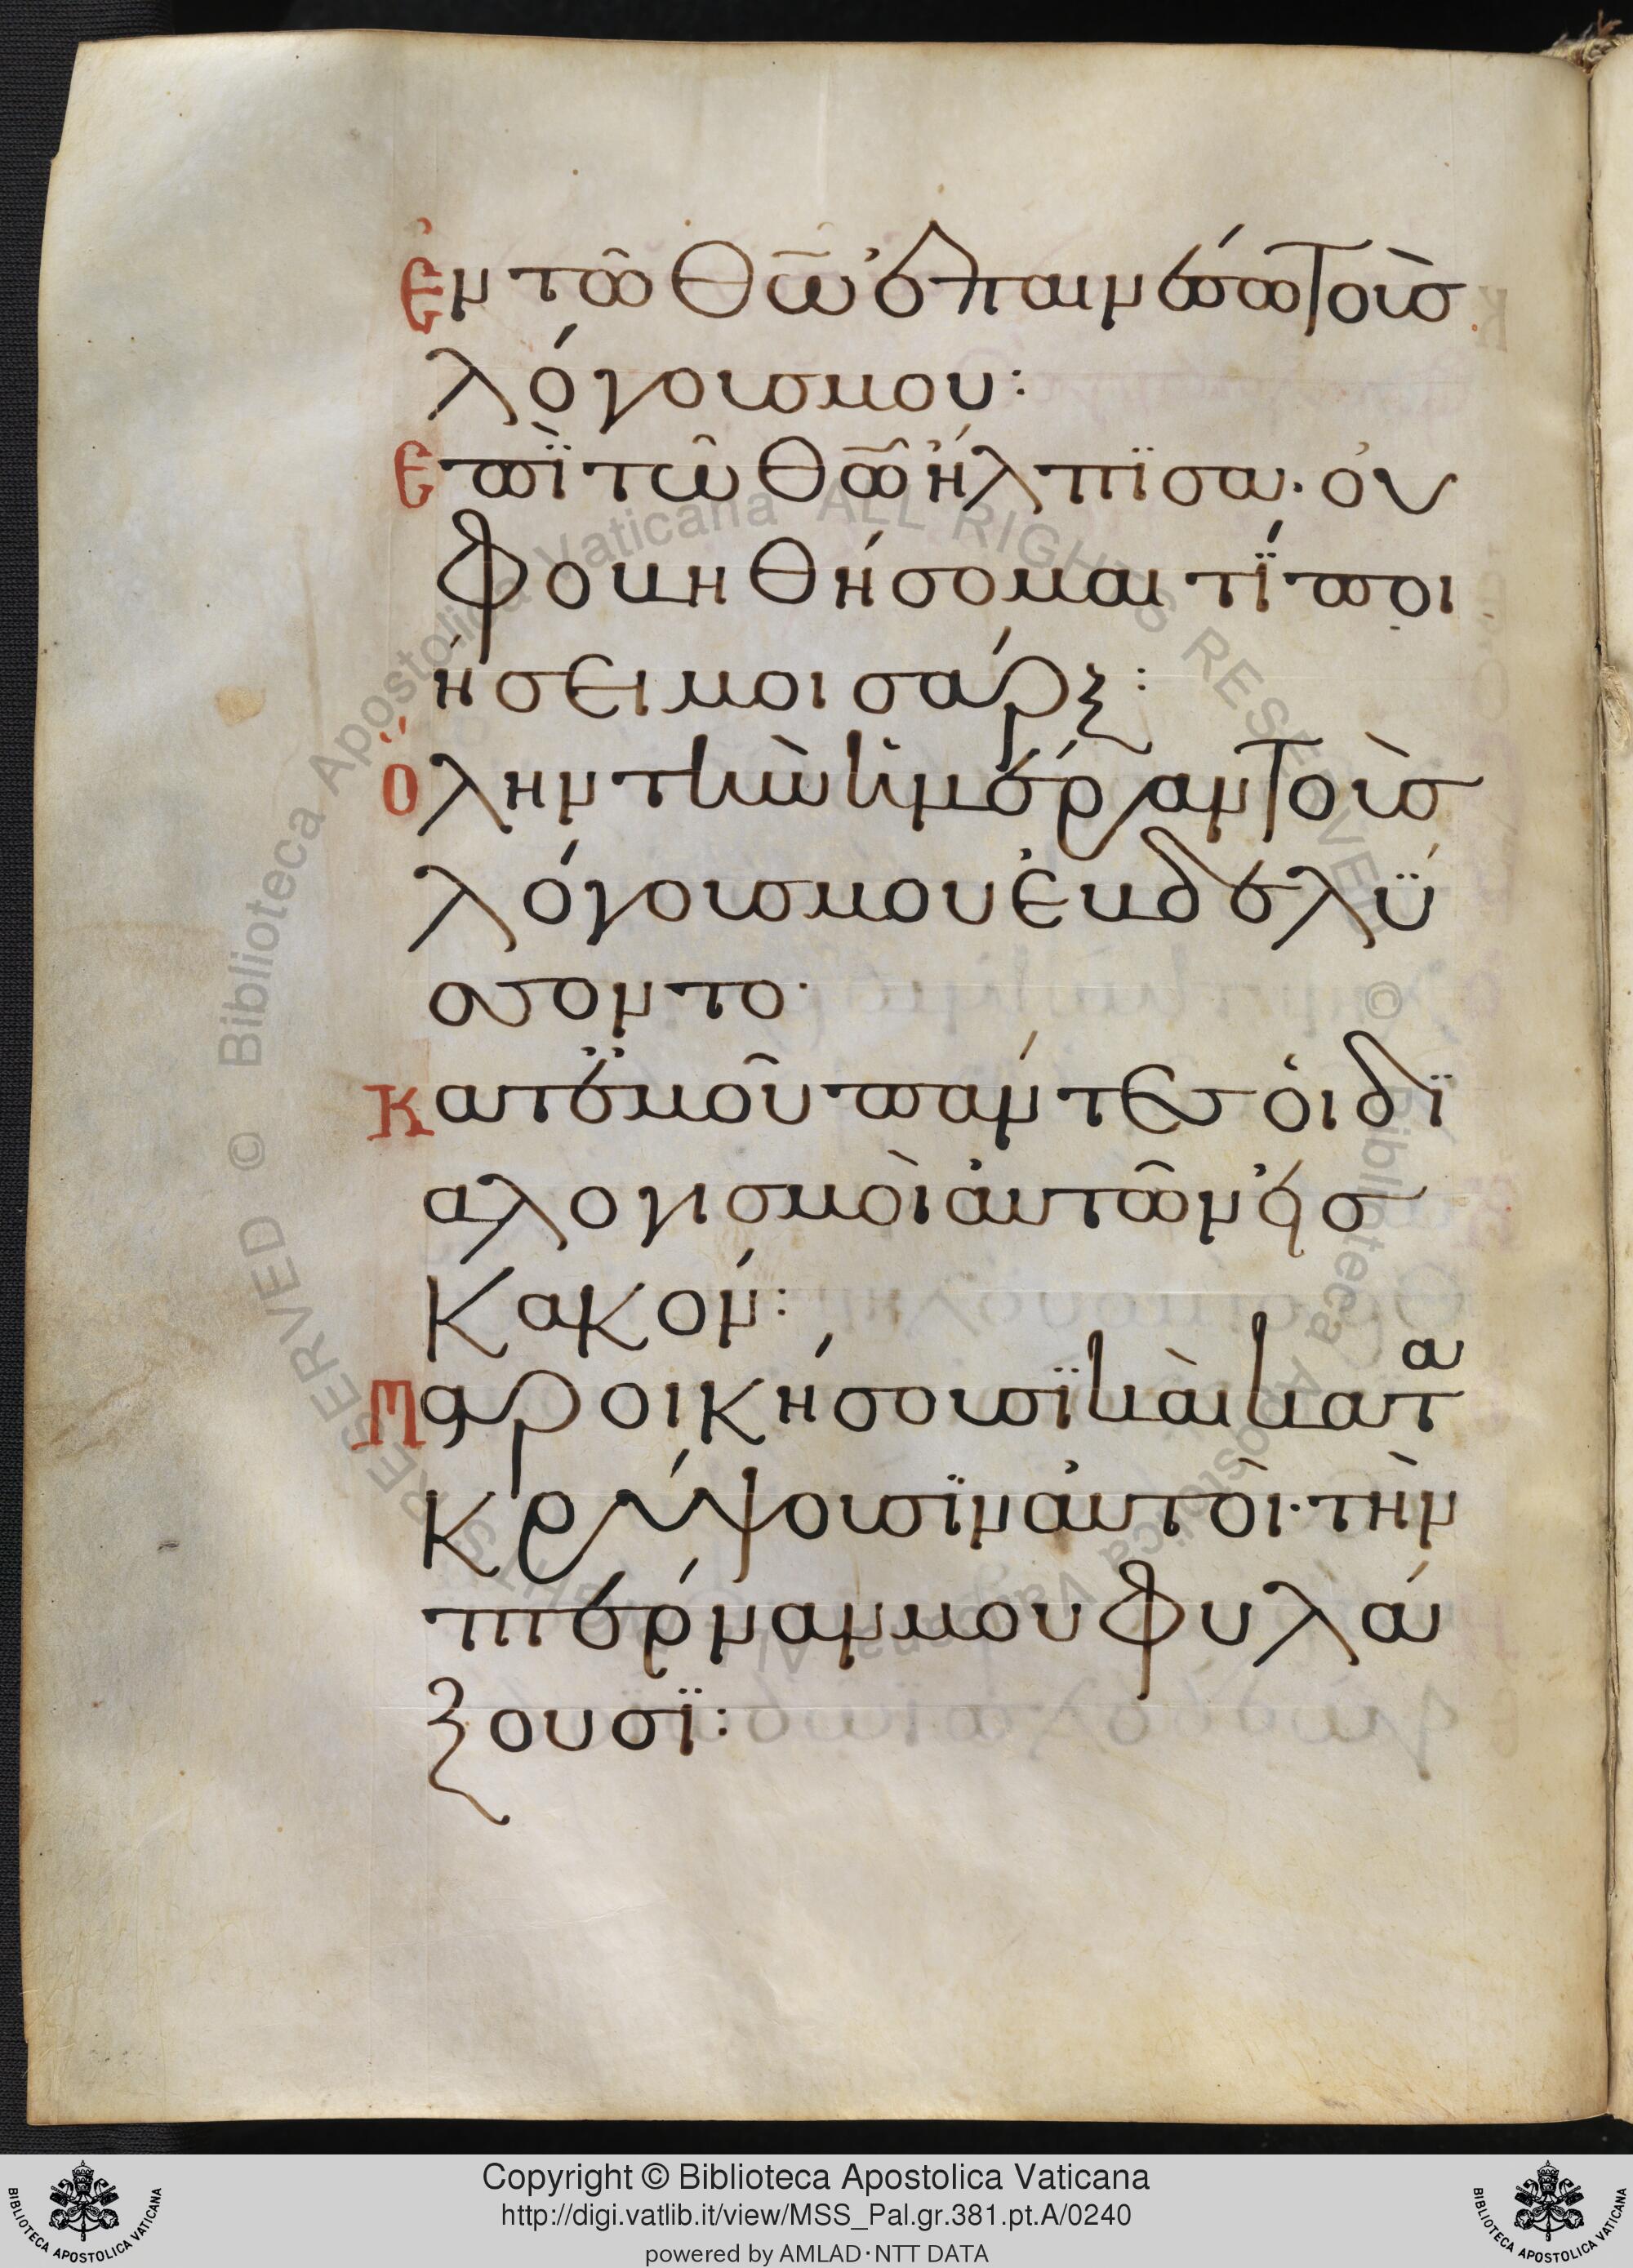 Ἐν τῶ θ̅ω̅ ἐπαινέσω τοὺσ
λόγουσ μου:
Ἐπῒ τῶ θ̅ῶ̅ ἤλπϊσα· οὐ
φοβηθήσομαι τΐ ποι
ήσει μοι σάρξ:
Ὅλην τὴν ἡμέραν τοὺσ
λόγουσ μου ἐβδελΰ
σσοντο·
Κατ̈ὲμοῦ πάντεσ ὁι δϊ
αλογισμοὶ ἀυτῶν ἐισ
κακόν:
Παροικήσουσϊ καὶ κατα
κρύψουσϊν ἀυτοὶ· τὴν
πτέρναν μου φυλά
ξουσϊ:
Biblioteca Apostolica Vaticana ALL RIGHTS RESERVED ©
Copyright © Biblioteca Apostolica Vaticana
http://digi.vatlib.it/view/MSS_Pal.gr.381.pt.A/0240
powered by AMLAD·NTT DATA
BIBLIOTECA APOSTOLICA VATICANA
BIBLIOTECA APOSTOLICA VATICANA